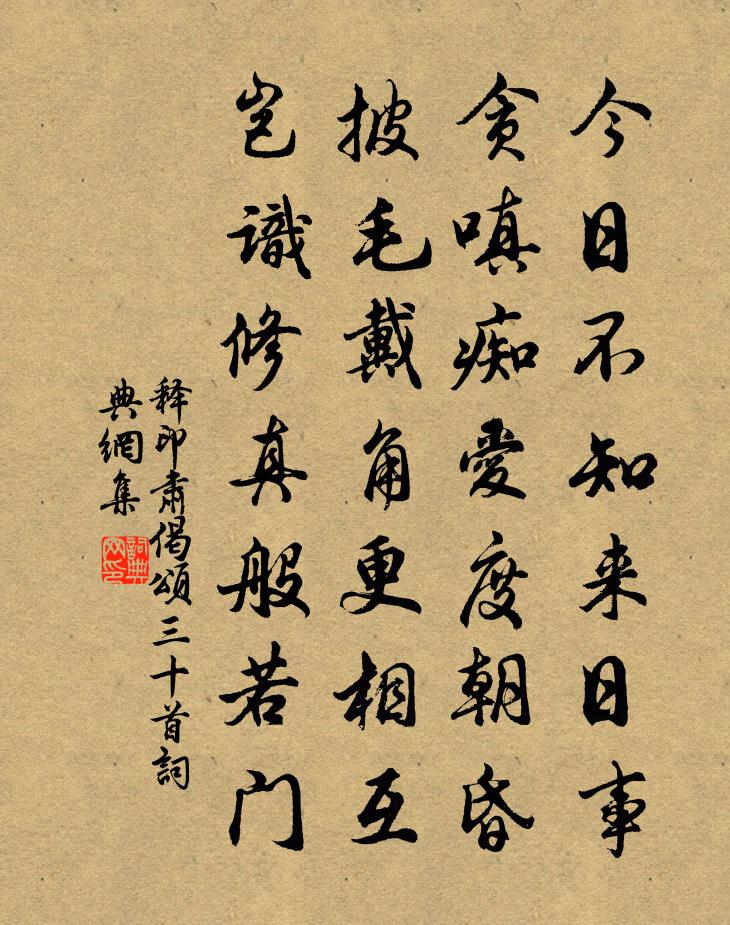 今日不知来日事
贪嗔痴愛度朝昏
披毛戴角更相互
岂識修真般若门
释印肃偈頌三十首詞
典網集
詞典
网印